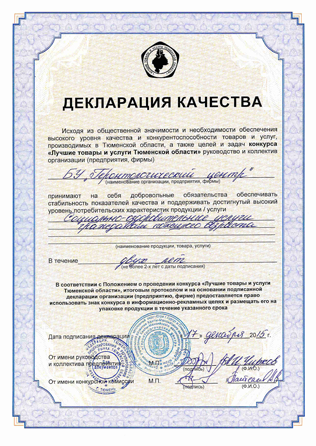 ДЕКЛАРАЦИЯ КАЧЕСТВА
Исходя из общественной значимости и необходимости обеспечения
высокого уровня качества и конкурентоспособности товаров и услуг,
производимых в Тюменской области, а также целей и задач конкурса
«Лучшие товары и услуги Тюменской области» руководство и коллектив
организации (предприятия, фирмы)
БУ „Геронтологический центр"
(наименование организации, предприятия, фирмы)
принимают на себя добровольные обязательства обеспечивать
стабильность показателей качества и поддерживать достигнутый высокий
уровень потребительских характеристик продукции / услуги
Социально-оздоровительные услуги
гражданам пожилого возраста
(наименование продукции, товара, услуги)
В течение двух лет
(не более 2-х лет с даты подписания)
В соответствии с Положением о проведении конкурса «Лучшие товары и услуги
Тюменской области», итоговым протоколом и на основании подписанной
декларации организации (предприятию, фирме) предоставляется право
использовать знак конкурса в информационно-рекламных целях и размещать его на
упаковке продукции в течение указанного срока
Дата подписания декларации 17 декабря 2015г.
От имени руководства
и коллектива предприятия М.П.
(подпись) (Ф.И.О.)
От имени конкурсной комиссии М.П.
(подпись) (Ф.И.О.)